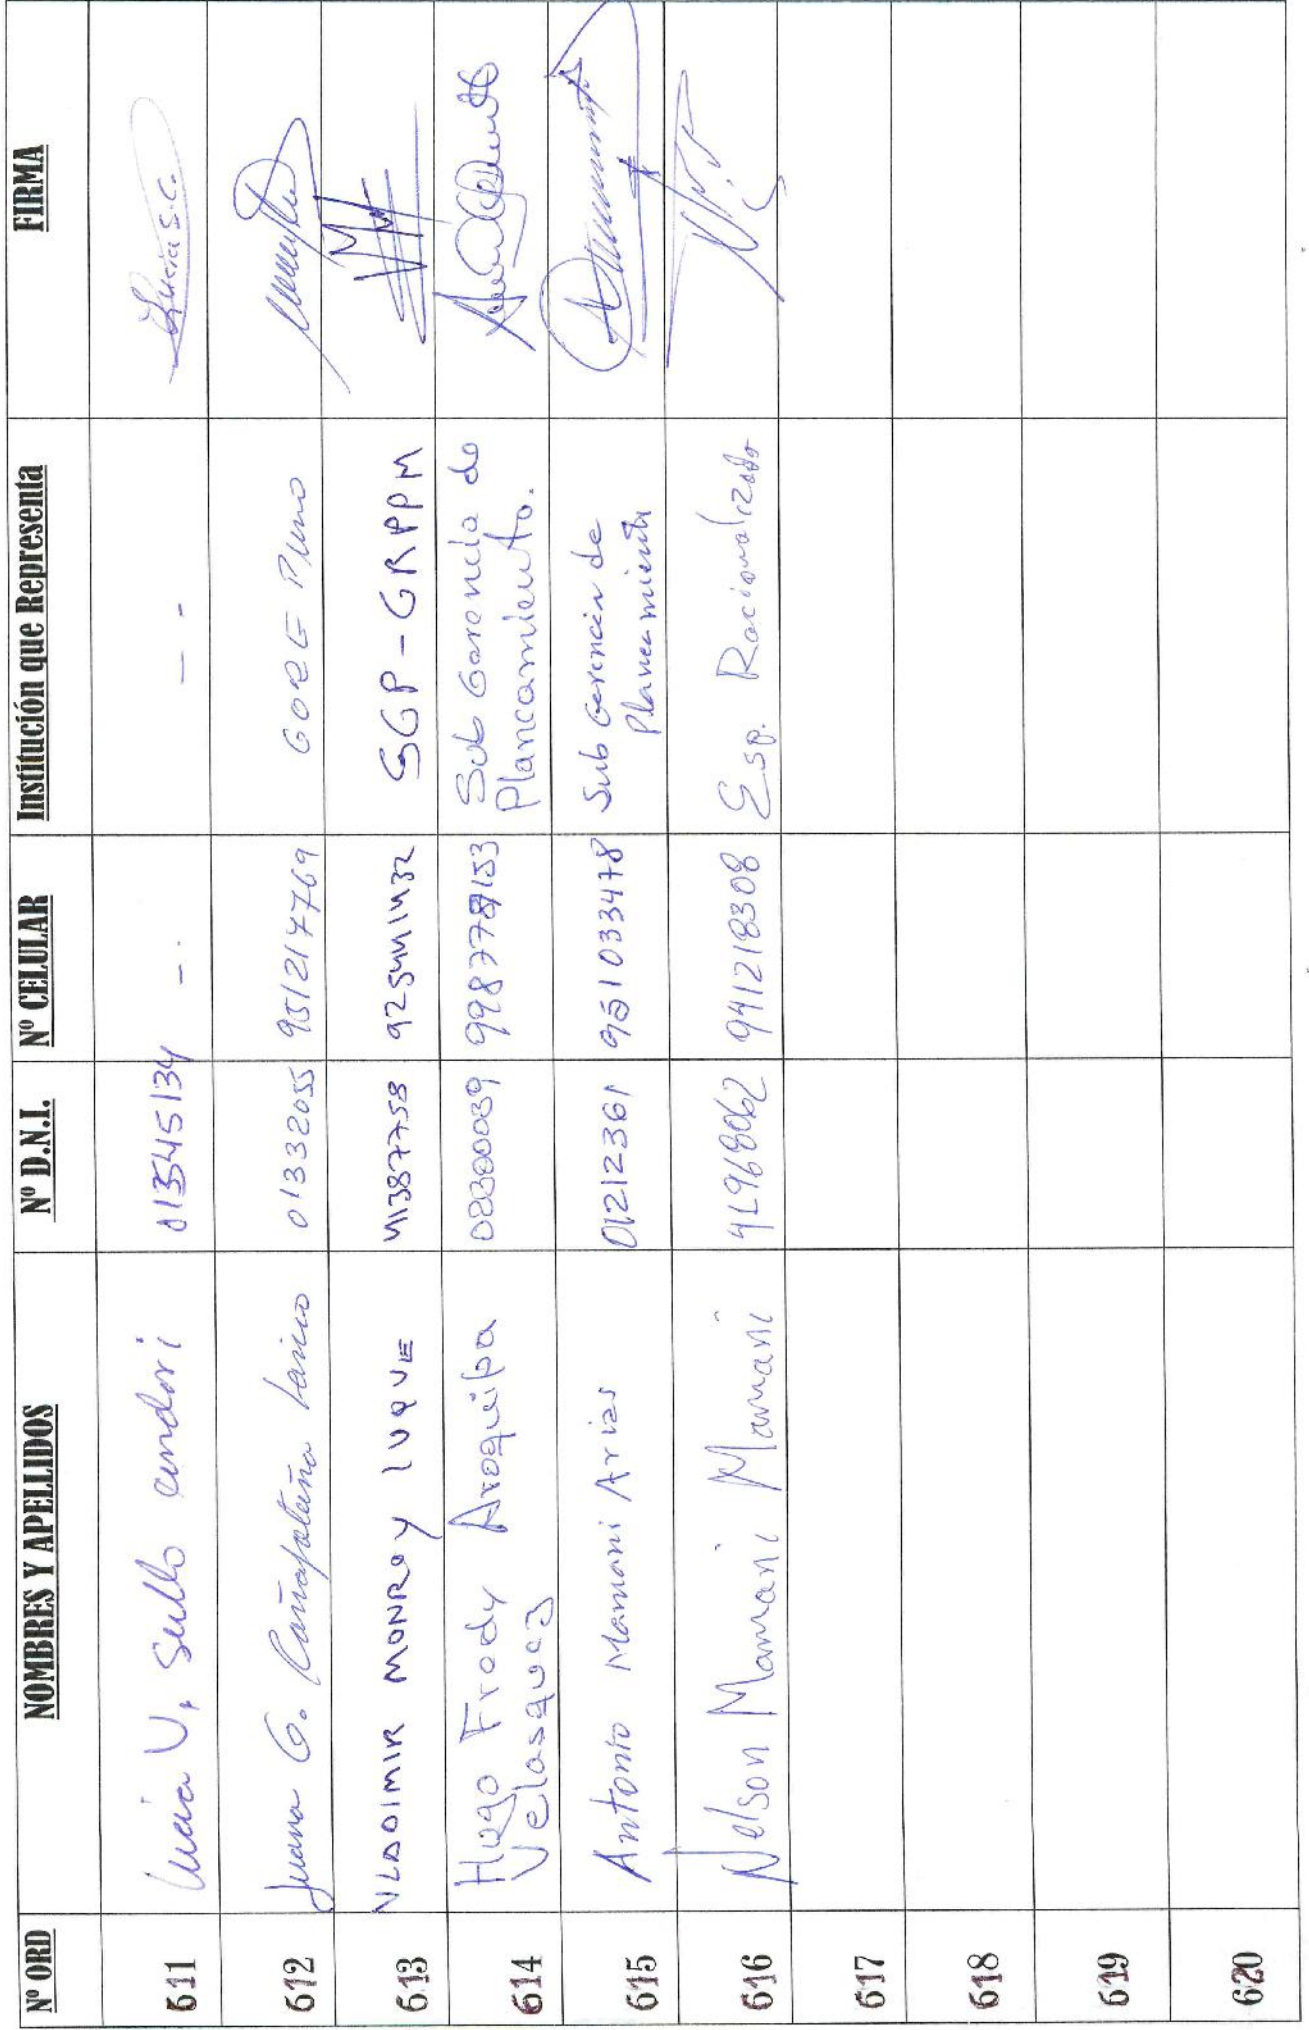 Nº ORD NOMBRES Y APELLIDOS Nº D.N.I. Nº CELULAR Institución que Representa FIRMA
611 Lucia V. Sullo Condori 01345134 - . - - Lucia S.C.
612 Juana G. 01332055 951217769 GORE Puno
613 VLADIMIR MONROY LUQUE 41387758 925441432 SGP - GRPPM
614 Hugo Fredy Aroquipa 998778153 Sub Gerencia de
Velasquez Planeamiento.
615 Antonio Mamani Arias 01212361 951033478 Sub Gerencia de
Planeamiento
616 Nelson Mamani Mamani 41968062 941218308 Esp. Racionalizado
617
618
619
620